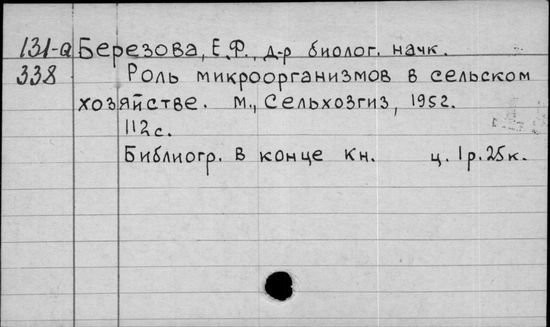 131-а Березова, Е.Ф., д-р биолог. начк.
338 Роль микроорганизмов в сельском
хозяйстве. М., Сельхозгиз, 1952.
112 с.
Библиогр. в конце кн. ц. 1 р. 25 к.